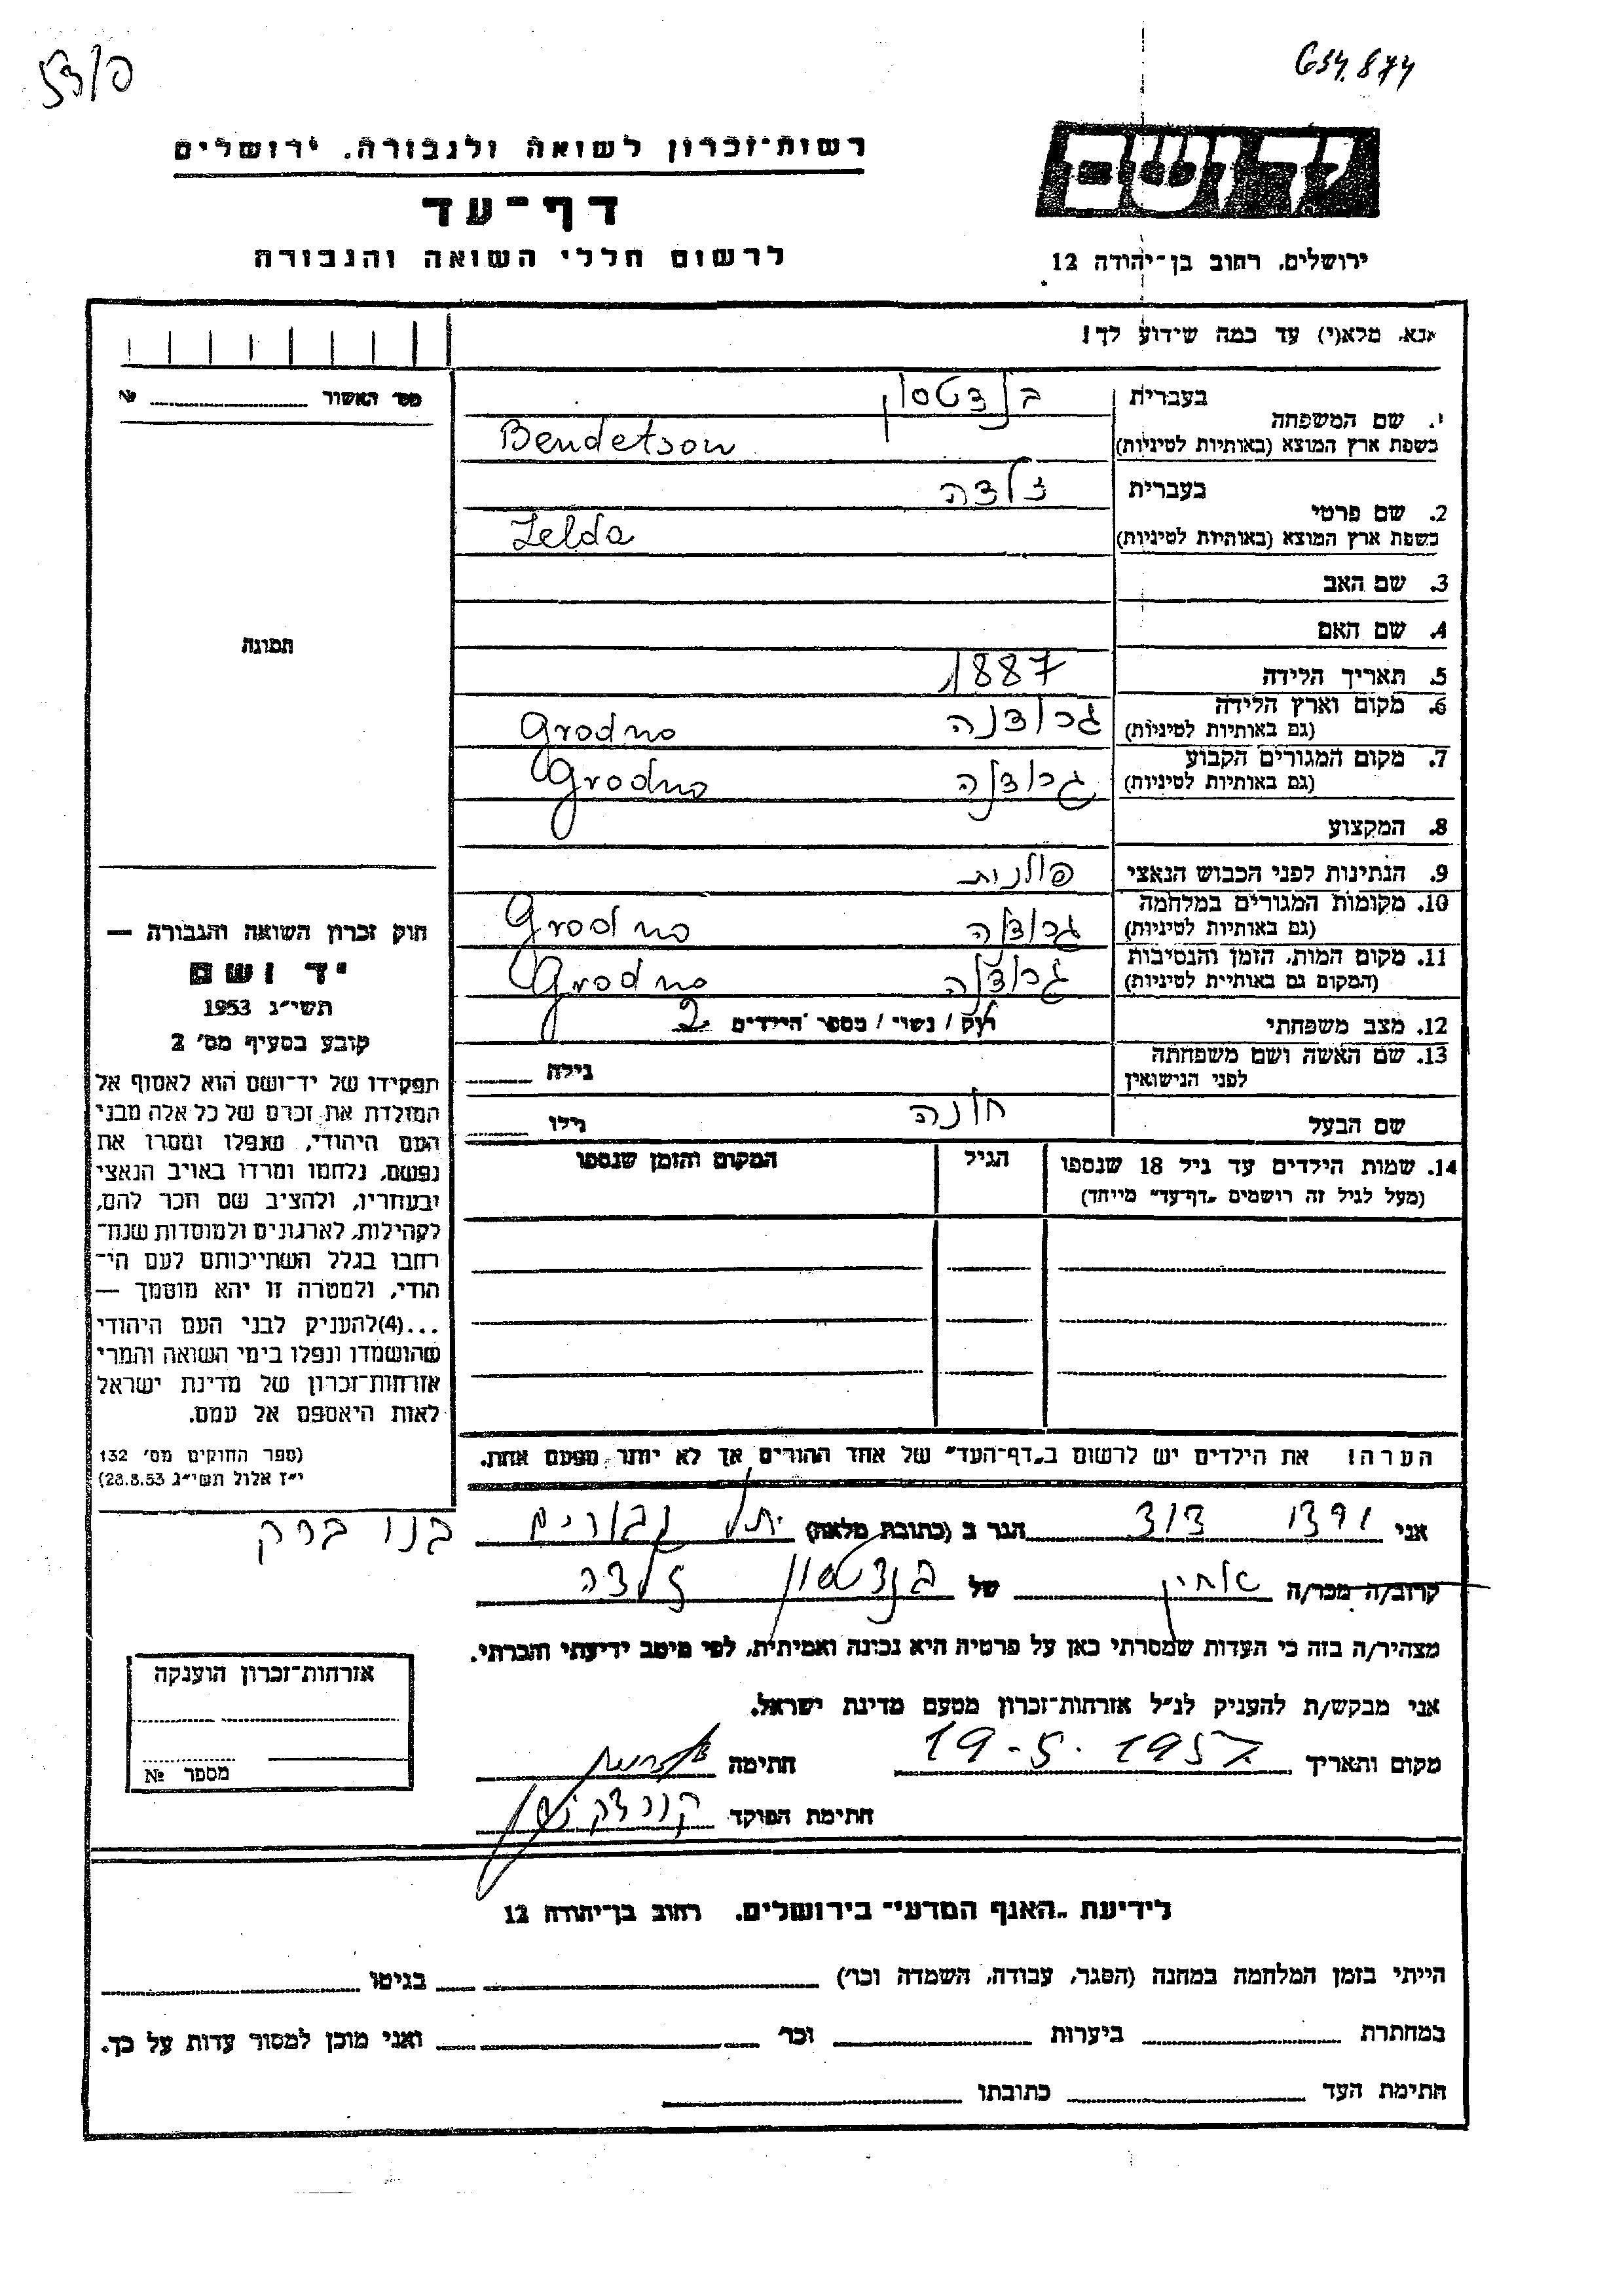 634.874
רשות־זכרון לשואה ולגבורה. ירושלים
דף־עד
לרשום חללי השואה והגבורה
ידושם
ירושלים, רחוב בן־יהודה 12
אנא, מלא(י) עד כמה שידוע לך!
מס׳ האשור №
תמונה
1. שם המשפחה
בעברית בנדטסון
בשפת ארץ המוצא (באותיות לטיניות) Bendetson
2. שם פרטי
בעברית זלדה
בשפת ארץ המוצא (באותיות לטיניות) Zelda
3. שם האב
4. שם האם
5. תאריך הלידה 1887
6. מקום וארץ הלידה גרודנה Grodno
(גם באותיות לטיניות)
7. מקום המגורים הקבוע גרודנה Grodno
(גם באותיות לטיניות)
8. המקצוע
9. הנתינות לפני הכבוש הנאצי פולנית
10. מקומות המגורים במלחמה גרודנה Grodno
(גם באותיות לטיניות)
11. מקום המות, הזמן והנסיבות גרודנה Grodno
(המקום גם באותיות לטיניות)
12. מצב משפחתי רוק / נשוי / מספר הילדים 2
13. שם האשה ושם משפחתה
לפני הנישואין
גילה
שם הבעל חונה גילו
14. שמות הילדים עד גיל 18 שנספו
(מעל לגיל זה רושמים „דף־עד” מיוחד)
הגיל
המקום והזמן שנספו
הערה! את הילדים יש לרשום ב„דף־העד” של אחד ההורים אך לא יותר מפעם אחת.
חוק זכרון השואה והגבורה —
יד ושם
תשי״ג 1953
קובע בסעיף מס׳ 2
תפקידו של יד־ושם הוא לאסוף אל
המולדת את זכרם של כל אלה מבני
העם היהודי, שנפלו ומסרו את
נפשם, נלחמו ומרדו באויב הנאצי
ובעוזריו, ולהציב שם וזכר להם,
לקהילות, לארגונים ולמוסדות שנח־
רבו בגלל השתייכותם לעם הי־
הודי, ולמטרה זו יהא מוסמך —
...(4) להעניק לבני העם היהודי
שהושמדו ונפלו בימי השואה והמרי
אזרחות־זכרון של מדינת ישראל
לאות היאספם אל עמם.
(ספר החוקים מס׳ 132
י״ז אלול תשי״ג 28.8.53)
אני דוד הגר ב (כתובת מלאה) תל גבורים בנו ברק
קרוב/ה מכר/ה אחין של בנדטסון זלדה
מצהיר/ה בזה כי העדות שמסרתי כאן על פרטיה היא נכונה ואמיתית, לפי מיטב ידיעתי והכרתי.
אני מבקש/ת להעניק לנ״ל אזרחות־זכרון מטעם מדינת ישראל.
מקום ותאריך 19-5.1957 חתימה
חתימת הפוקד
אזרחות־זכרון הוענקה
מספר №
לידיעת „האגף המדעי” בירושלים, רחוב בן־יהודה 12
הייתי בזמן המלחמה במחנה (הסגר, עבודה, השמדה וכו׳) בגיטו
במחתרת ביערות וכו׳ ואני מוכן למסור עדות על כך.
חתימת העד כתובתו